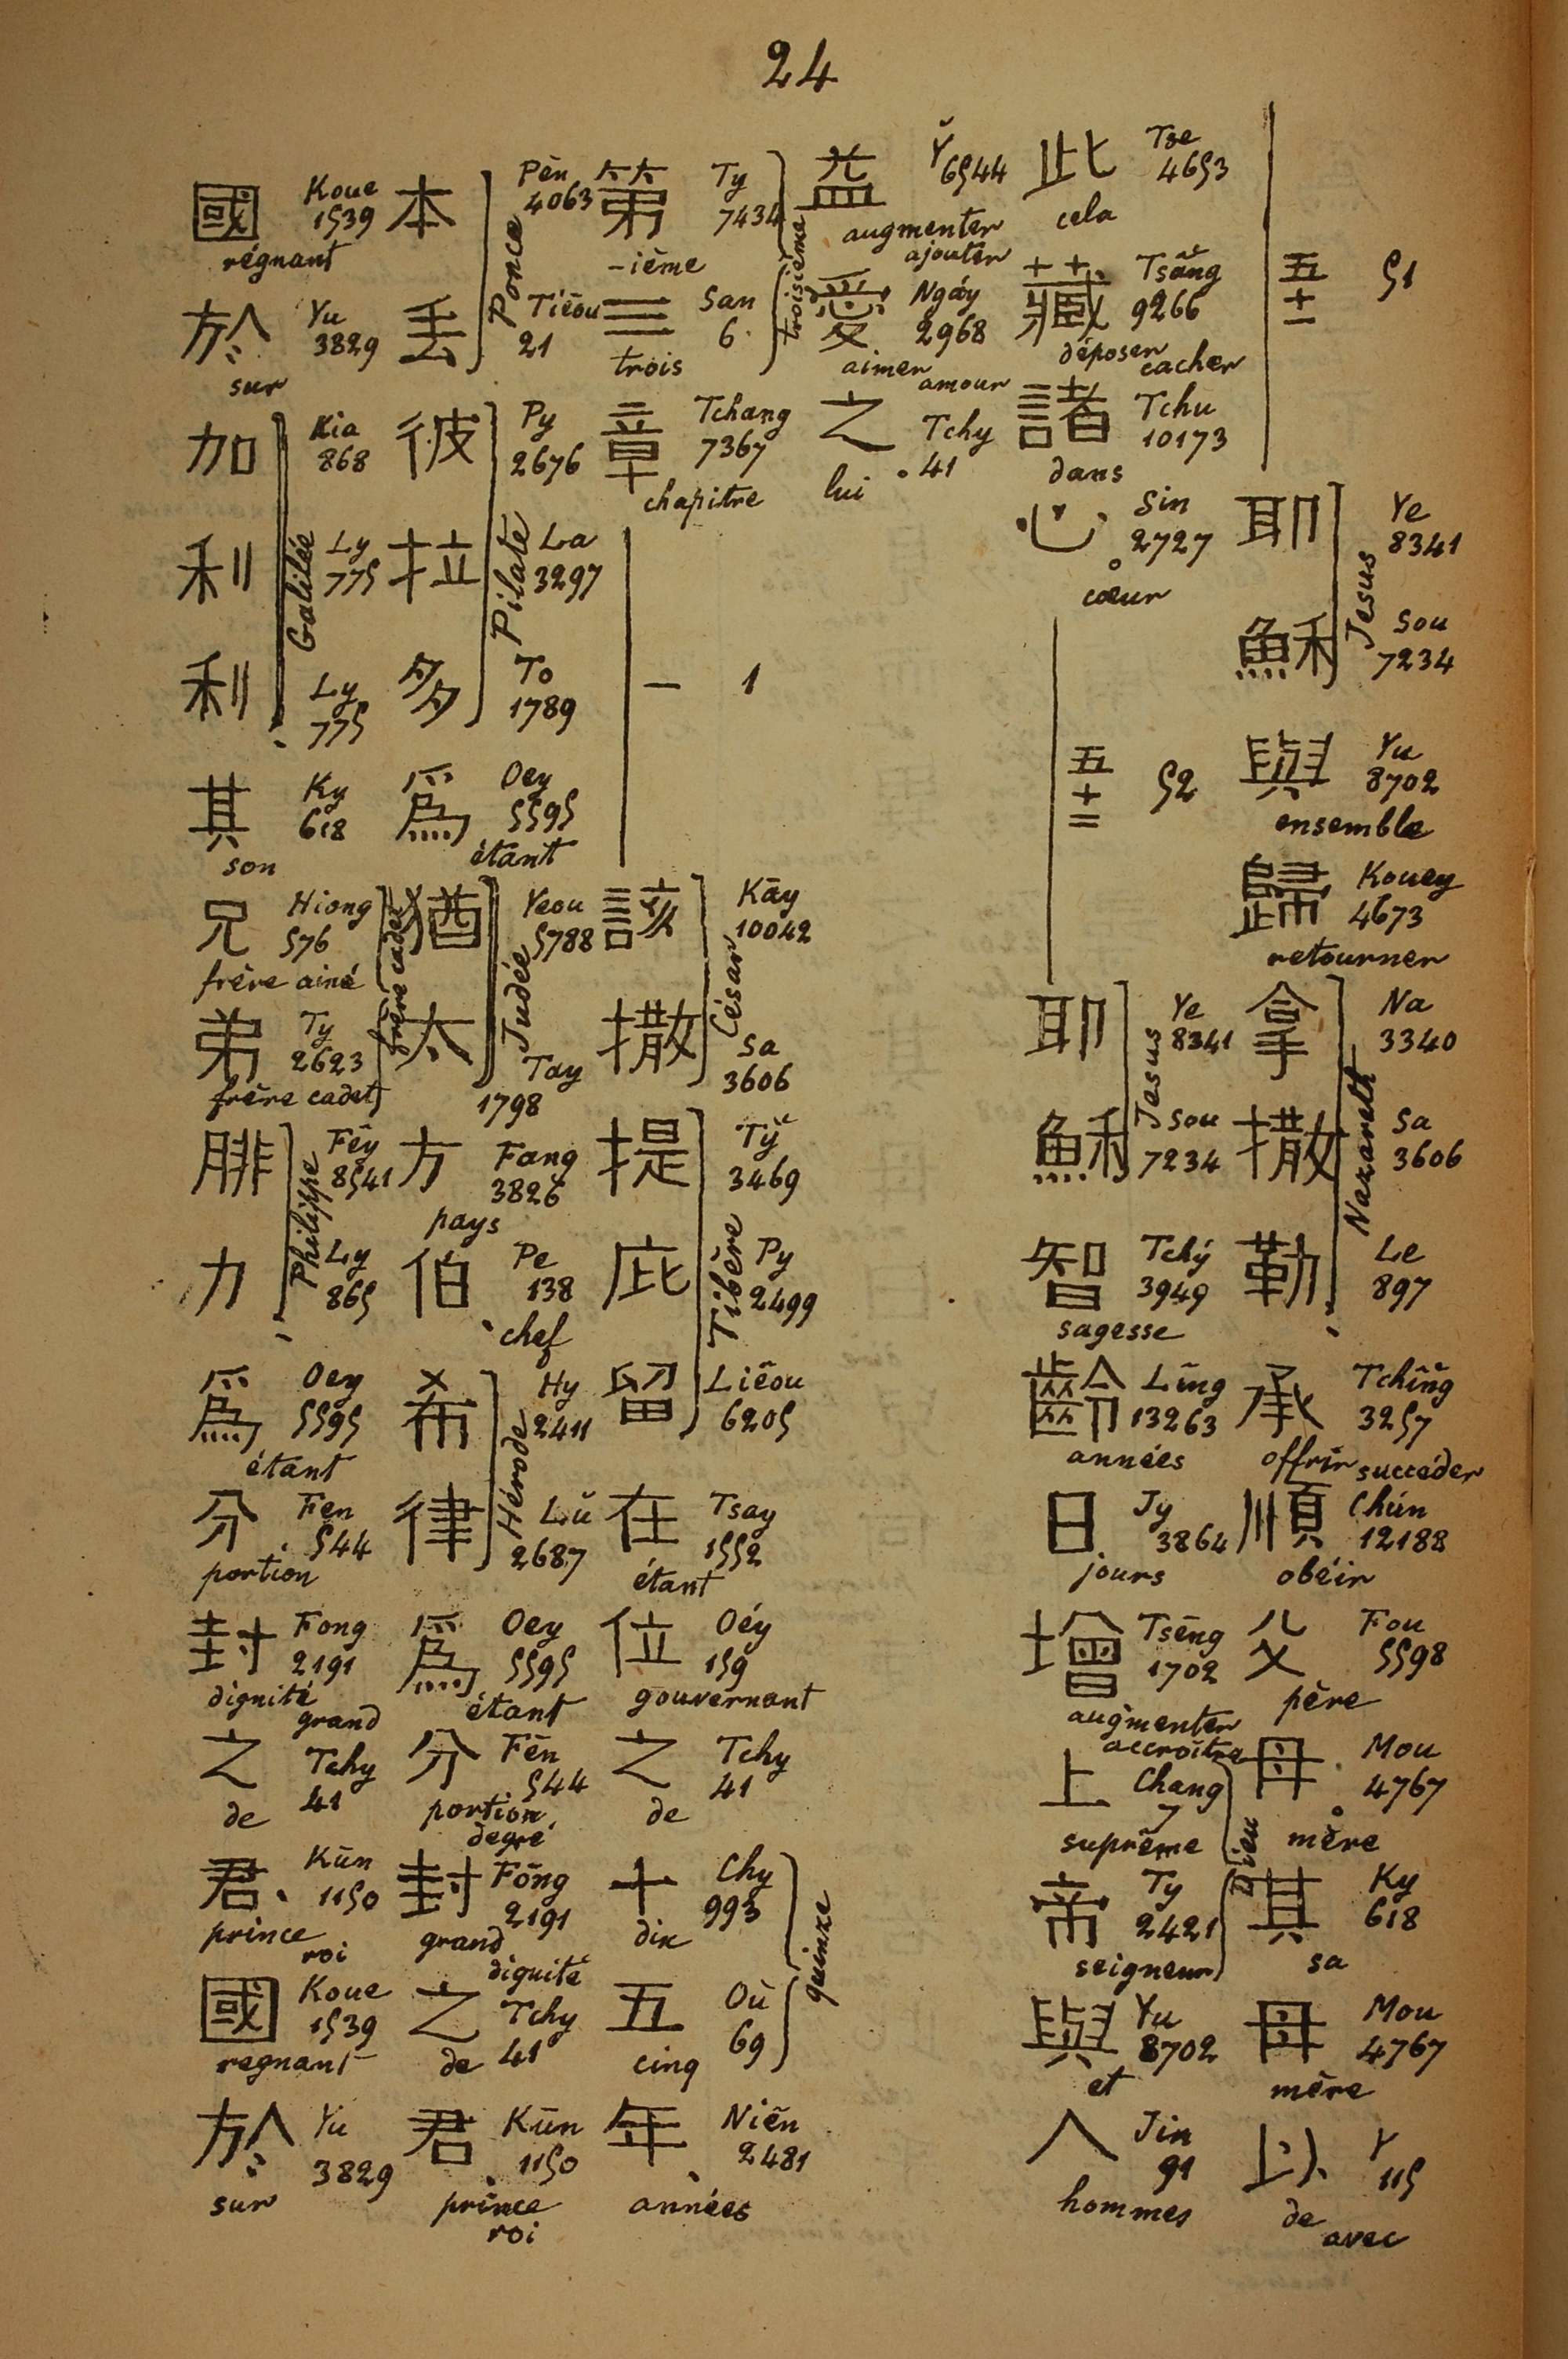 24
五十一 51
耶 Ye 8341
穌 Sou 7234
Jesus
與 Yu 8702
ensemble
歸 Kouey 4673
retourner
拿 Na 3340
撒 Sa 3606
勒 Le 897
Nazareth
承 Tchîng 3257
offrir succéder
順 Chún 12188
obéir
父 Fou 5598
père
母 Mou 4767
mère
其 Ky 618
sa
母 Mou 4767
mère
以 Y 115
de avec
此 Tse 4653
cela
藏 Tsăng 9266
déposer cacher
諸 Tchu 10173
dans
心 Sin 2727
cœur
五十二 52
耶 Ye 8341
穌 Sou 7234
Jesus
智 Tchý 3949
sagesse
齡 Lîng 13263
années
日 Jy 3864
jours
增 Tsēng 1702
augmenter accroître
上 Chang 7
suprême
帝 Ty 2421
seigneur
Dieu
與 Yu 8702
et
人 Jin 91
hommes
益 Y̆ 6544
augmenter ajouter
愛 Ngáy 2968
aimer amour
之 Tchy 41
lui
第 Ty 7434
-ième
三 San 6
trois
troisième
章 Tchang 7367
chapitre
一 1
該 Kāy 10042
撒 Sa 3606
César
提 Ty̆ 3469
庇 Py 2499
留 Liêou 6205
Tibère
在 Tsay 1552
étant
位 Oéy 159
gouvernant
之 Tchy 41
de
十 Chy 993
dix
五 Où 69
cinq
quinze
年 Niên 2481
années
本 Pèn 4063
丢 Tiēou 21
Ponce
彼 Py 2676
拉 La 3297
多 To 1789
Pilate
爲 Oey 5595
étant
猶 Yeou 5788
太 Tay 1798
Judée
方 Fang 3826
pays
伯 Pe 138
chef
希 Hy 2411
律 Lŭ 2687
Hérode
爲 Oey 5595
étant
分 Fēn 544
portion degré
封 Fōng 2191
grand dignité
之 Tchy 41
de
君 Kūn 1150
prince roi
國 Koue 1539
régnant
於 Yu 3829
sur
加 Kia 868
利 Ly 775
利 Ly 775
Galilée
其 Ky 618
son
兄 Hiong 576
frère ainé
弟 Ty 2623
frère cadet
frère cadet
腓 Fēy 8541
力 Ly 865
Philippe
爲 Oey 5595
étant
分 Fen 544
portion
封 Fong 2191
dignité grand
之 Tchy 41
de
君 Kūn 1150
prince roi
國 Koue 1539
regnant
於 Yu 3829
sur